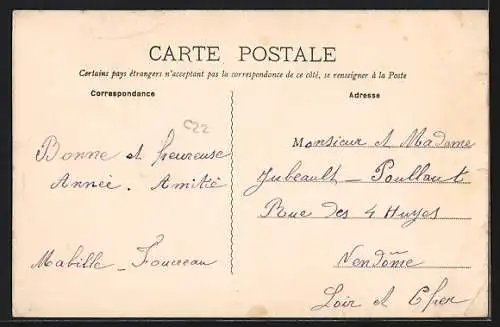 CARTE POSTALE
Certains pays étrangers n'acceptent pas la correspondance de ce côté, se renseigner à la Poste
Correspondance
Adresse
C22
Bonne et heureuse
Année. Amitié
Mabille - Fourreau
Monsieur et Madame
Jubeault - Poullaut
Rue des 4 Huyes
Vendôme
Loir et Cher